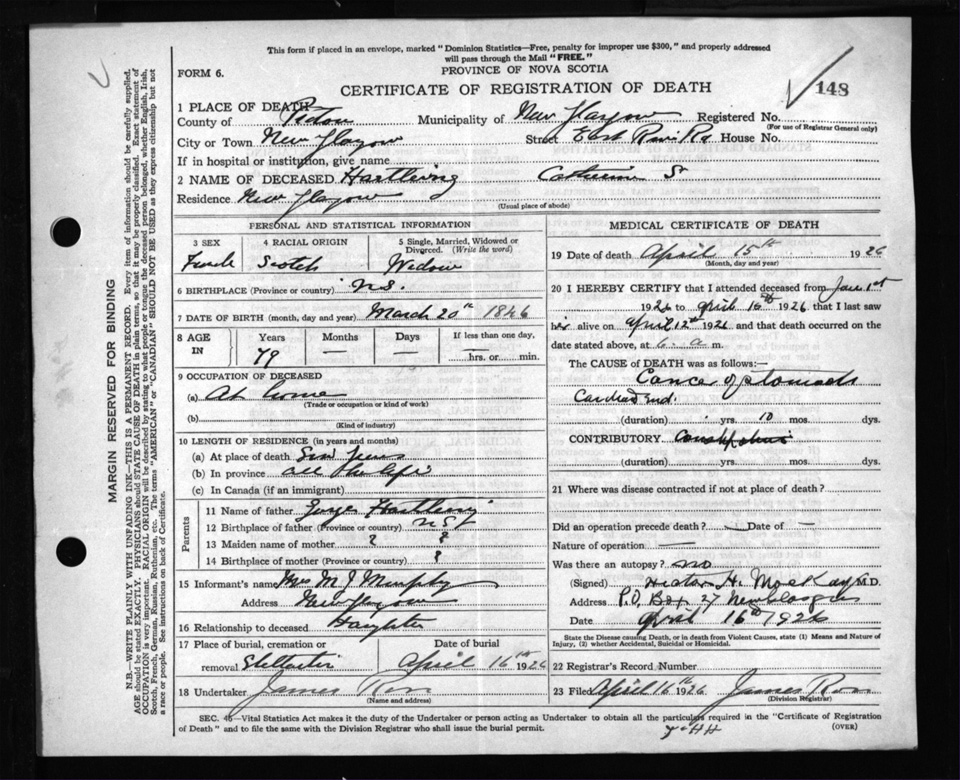 This form if placed in an envelope, marked "Dominion Statistics—Free, penalty for improper use $300," and properly addressed
will pass through the Mail "FREE."
FORM 6.
PROVINCE OF NOVA SCOTIA
CERTIFICATE OF REGISTRATION OF DEATH
148
1 PLACE OF DEATH
County of Pictou Municipality of New Glasgow Registered No.
(For use of Registrar General only)
City or Town New Glasgow Street East River Rd House No.
If in hospital or institution, give name
2 NAME OF DECEASED Hartling Catherine
Residence New Glasgow
(Usual place of abode)
PERSONAL AND STATISTICAL INFORMATION
3 SEX 4 RACIAL ORIGIN 5 Single, Married, Widowed or Divorced. (Write the word)
Female Scotch Widow
6 BIRTHPLACE (Province or country) N.S.
7 DATE OF BIRTH (month, day and year) March 20th 1846
8 AGE IN Years Months Days If less than one day,
79 — — hrs. or min.
9 OCCUPATION OF DECEASED
(a) At home
(Trade or occupation or kind of work)
(b)
(Kind of industry)
10 LENGTH OF RESIDENCE (in years and months)
(a) At place of death
(b) In province all the life
(c) In Canada (if an immigrant)
Parents
11 Name of father George Hartling
12 Birthplace of father (Province or country)
13 Maiden name of mother ? ?
14 Birthplace of mother (Province or country) ?
15 Informant's name Mrs M J Murphy
Address New Glasgow
16 Relationship to deceased Daughter
17 Place of burial, cremation or Date of burial
removal Stellarton April 16th 1926
18 Undertaker James Ross
(Name and address)
MEDICAL CERTIFICATE OF DEATH
19 Date of death April 15th 1926
(Month, day and year)
20 I HEREBY CERTIFY that I attended deceased from Jan 1st
1926 to April 16th 1926 that I last saw
her alive on April 12th 1926 and that death occurred on the
date stated above, at 6 a m.
The CAUSE OF DEATH was as follows:—
Cancer of stomach
Cardiac End.
(duration) yrs. 10 mos. dys.
CONTRIBUTORY
(duration) yrs. mos. dys.
21 Where was disease contracted if not at place of death?
Did an operation precede death? — Date of —
Nature of operation —
Was there an autopsy? no
(Signed) Hector H. MacKay M.D.
Address P.O. Box 27 New Glasgow
Date April 16th 1926
State the Disease causing Death, or in death from Violent Causes, state (1) Means and Nature of
Injury, (2) whether Accidental, Suicidal or Homicidal.
22 Registrar's Record Number
23 Filed April 16th 1926 James Ross
(Division Registrar)
SEC. 46—Vital Statistics Act makes it the duty of the Undertaker or person acting as Undertaker to obtain all the particulars required in the "Certificate of Registration
of Death" and to file the same with the Division Registrar who shall issue the burial permit.
(OVER)
MARGIN RESERVED FOR BINDING
N.B.—WRITE PLAINLY WITH UNFADING INK—THIS IS A PERMANENT RECORD. Every item of information should be carefully supplied.
AGE should be stated EXACTLY. PHYSICIANS should STATE CAUSE OF DEATH in plain terms, so that it may be properly classified. Exact statement of
OCCUPATION is very important. RACIAL ORIGIN will be described by stating to what people or tongue the deceased person belonged, whether English, Irish,
Scotch, French, German, Russian, Ruthenian, etc. The terms "AMERICAN" or "CANADIAN" SHOULD NOT BE USED as they express citizenship but not
a race or people. See instructions on back of Certificate.